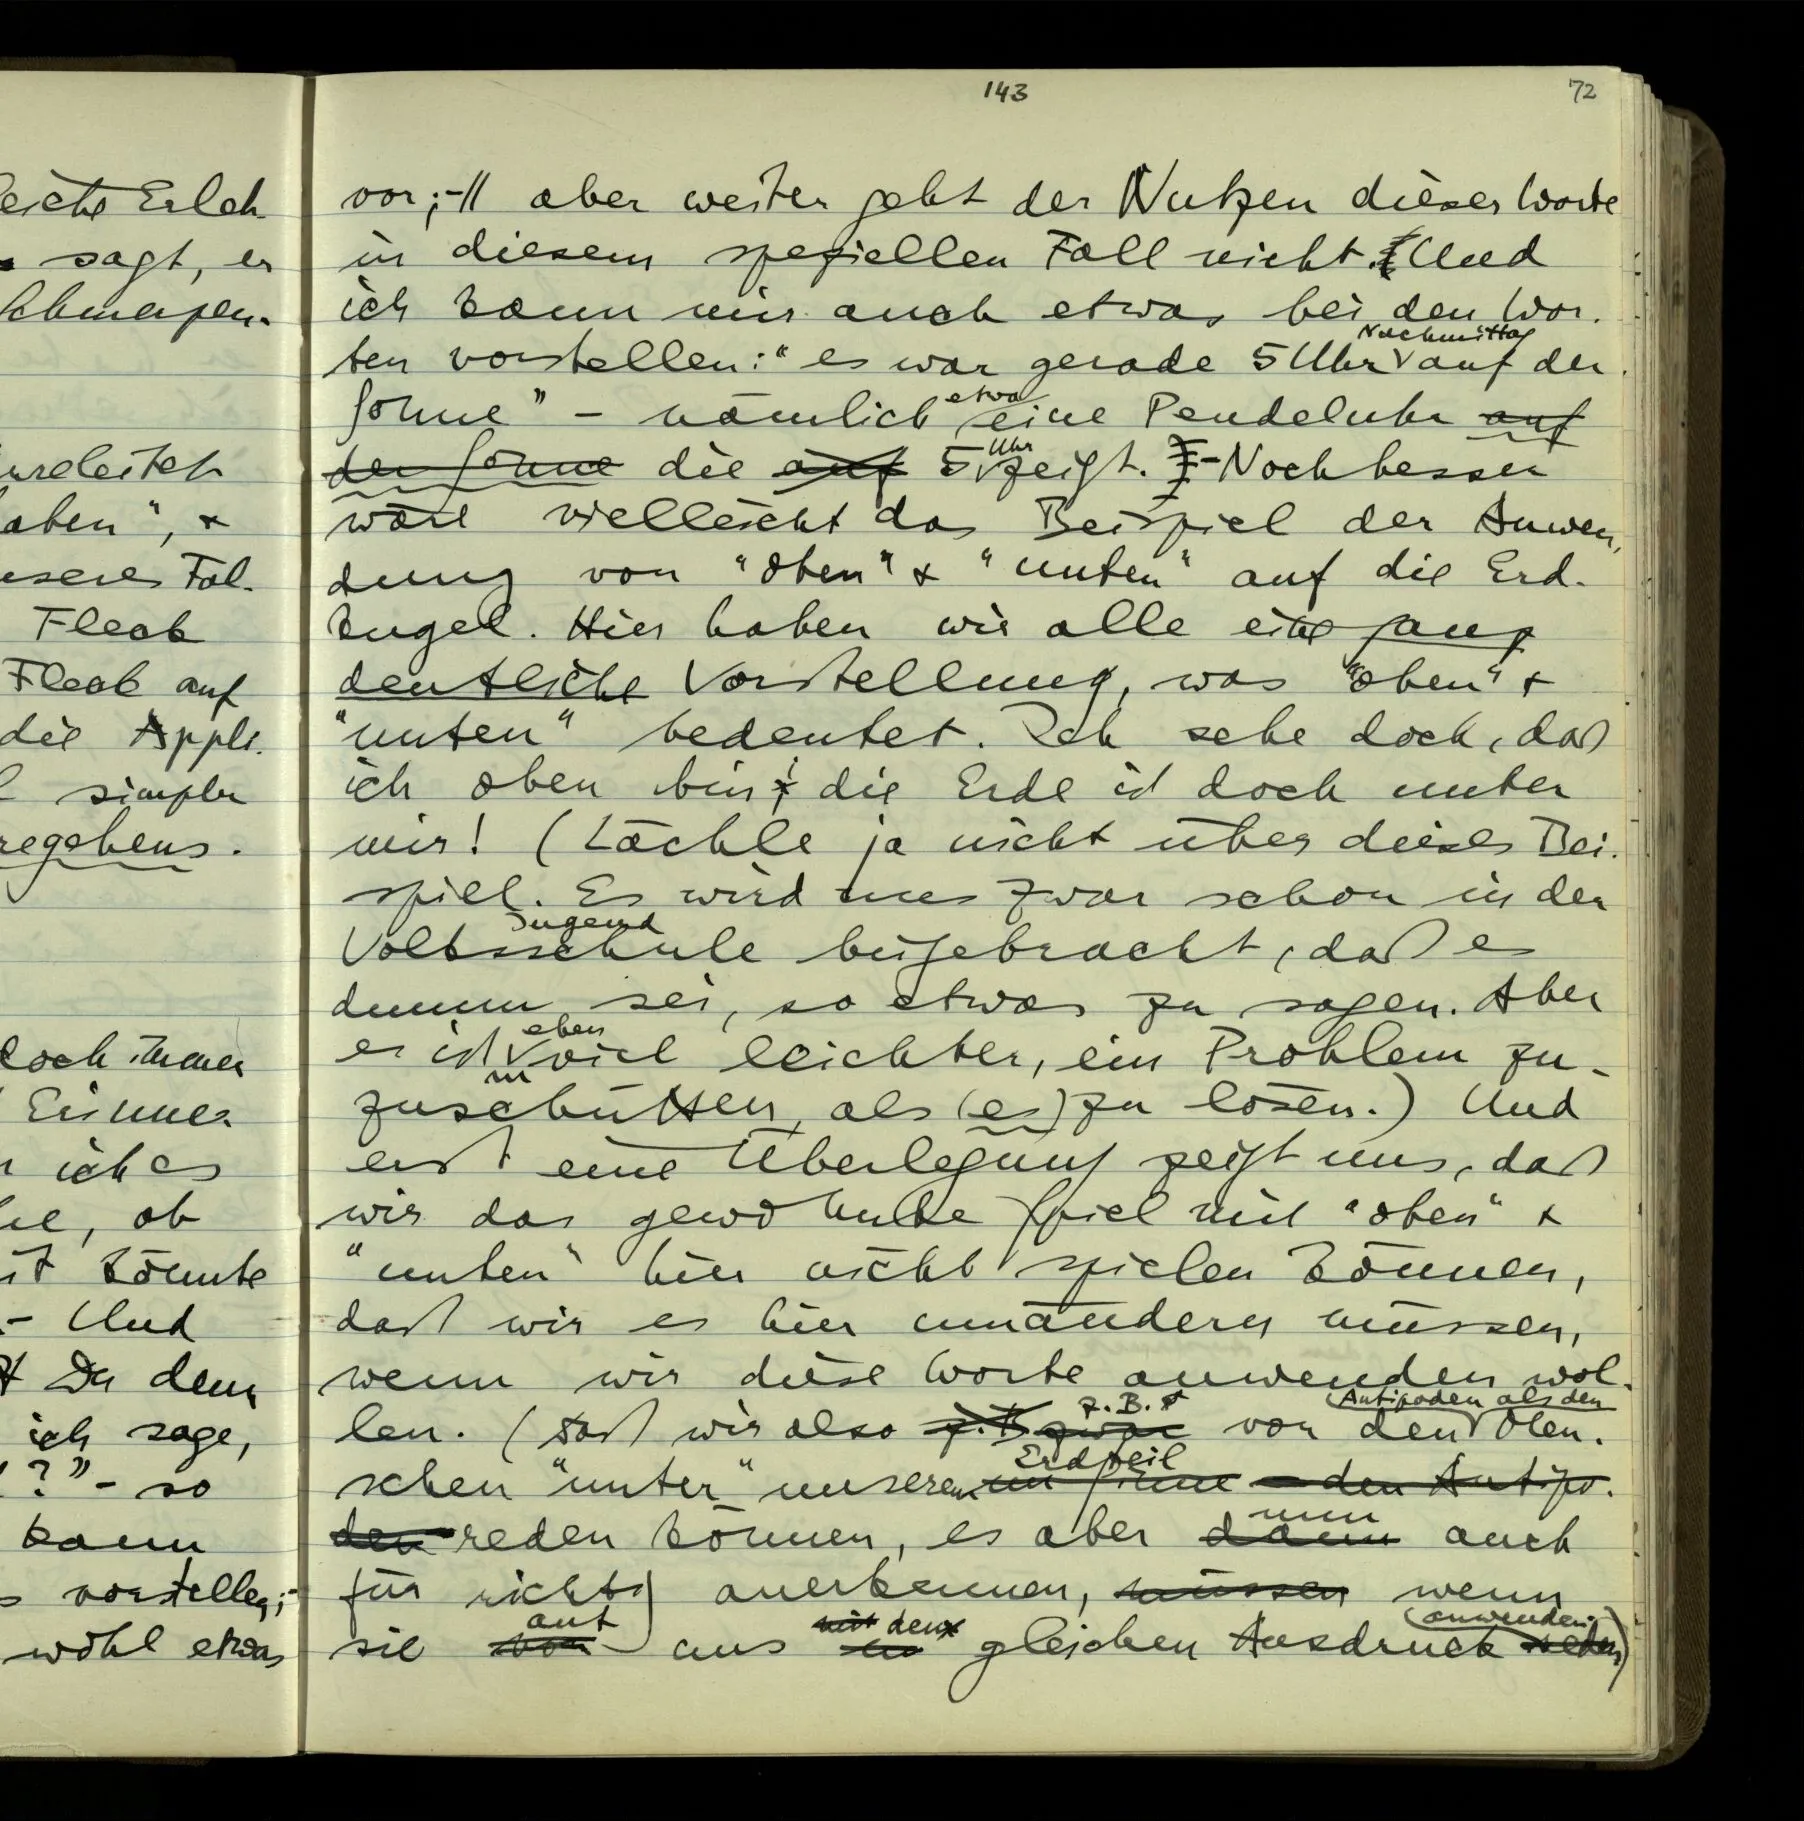 143
72
eichs Erleb
sagt, er
Schmerzen.
aben", &
unseres Fal-
Fleck
Fleck auf
die Appli-
simpler
regebens.
doch immer
Erinner
ich es
, ob
könnte
- Und
Du denn
ich sage,
?" - so
kann
vorstellen;-
wohl etwas
vor;-|| aber weiter geht der Nutzen dieser Worte
in diesem speziellen Fall nicht. Und
ich kann mir auch etwas bei den Wor-
ten vorstellen: "es war gerade 5 Uhr Nachmittag auf der
Sonne" – nämlich etwa eine Pendeluhr auf
der Sonne die auf 5 Uhr zeigt. – Noch besser
wäre vielleicht das Beispiel der Anwen-
dung von "oben" & "unten" auf die Erd-
kugel. Hier haben wir alle eine ganz
deutliche Vorstellung, was "oben" &
"unten" bedeutet. Ich sehe doch, daß
ich oben bin; die Erde ist doch unter
mir! (Lächle ja nicht über dieses Bei-
spiel. Es wird uns zwar schon in der
Jugend
Volksschule beigebracht, daß es
dumm sei, so etwas zu sagen. Aber
es ist eben viel leichter, ein Problem zu-
zuschütten, als (es) zu lösen.) Und
erst eine Überlegung zeigt uns, daß
wir das gewohnte Spiel mit "oben" &
"unten" hier nicht spielen können,
daß wir es hier umändern müssen,
wenn wir diese Worte anwenden wol-
len. (Daß wir also z.B. zwar z.B. von den Antipoden als den Men-
schen "unter" unserem Erdteil im Sinne – den Antipo-
den reden können, es aber dann nun auch
für richtig anerkennen, müssen wenn
sie von auf uns mit den gleichen Ausdruck anwenden. reden)